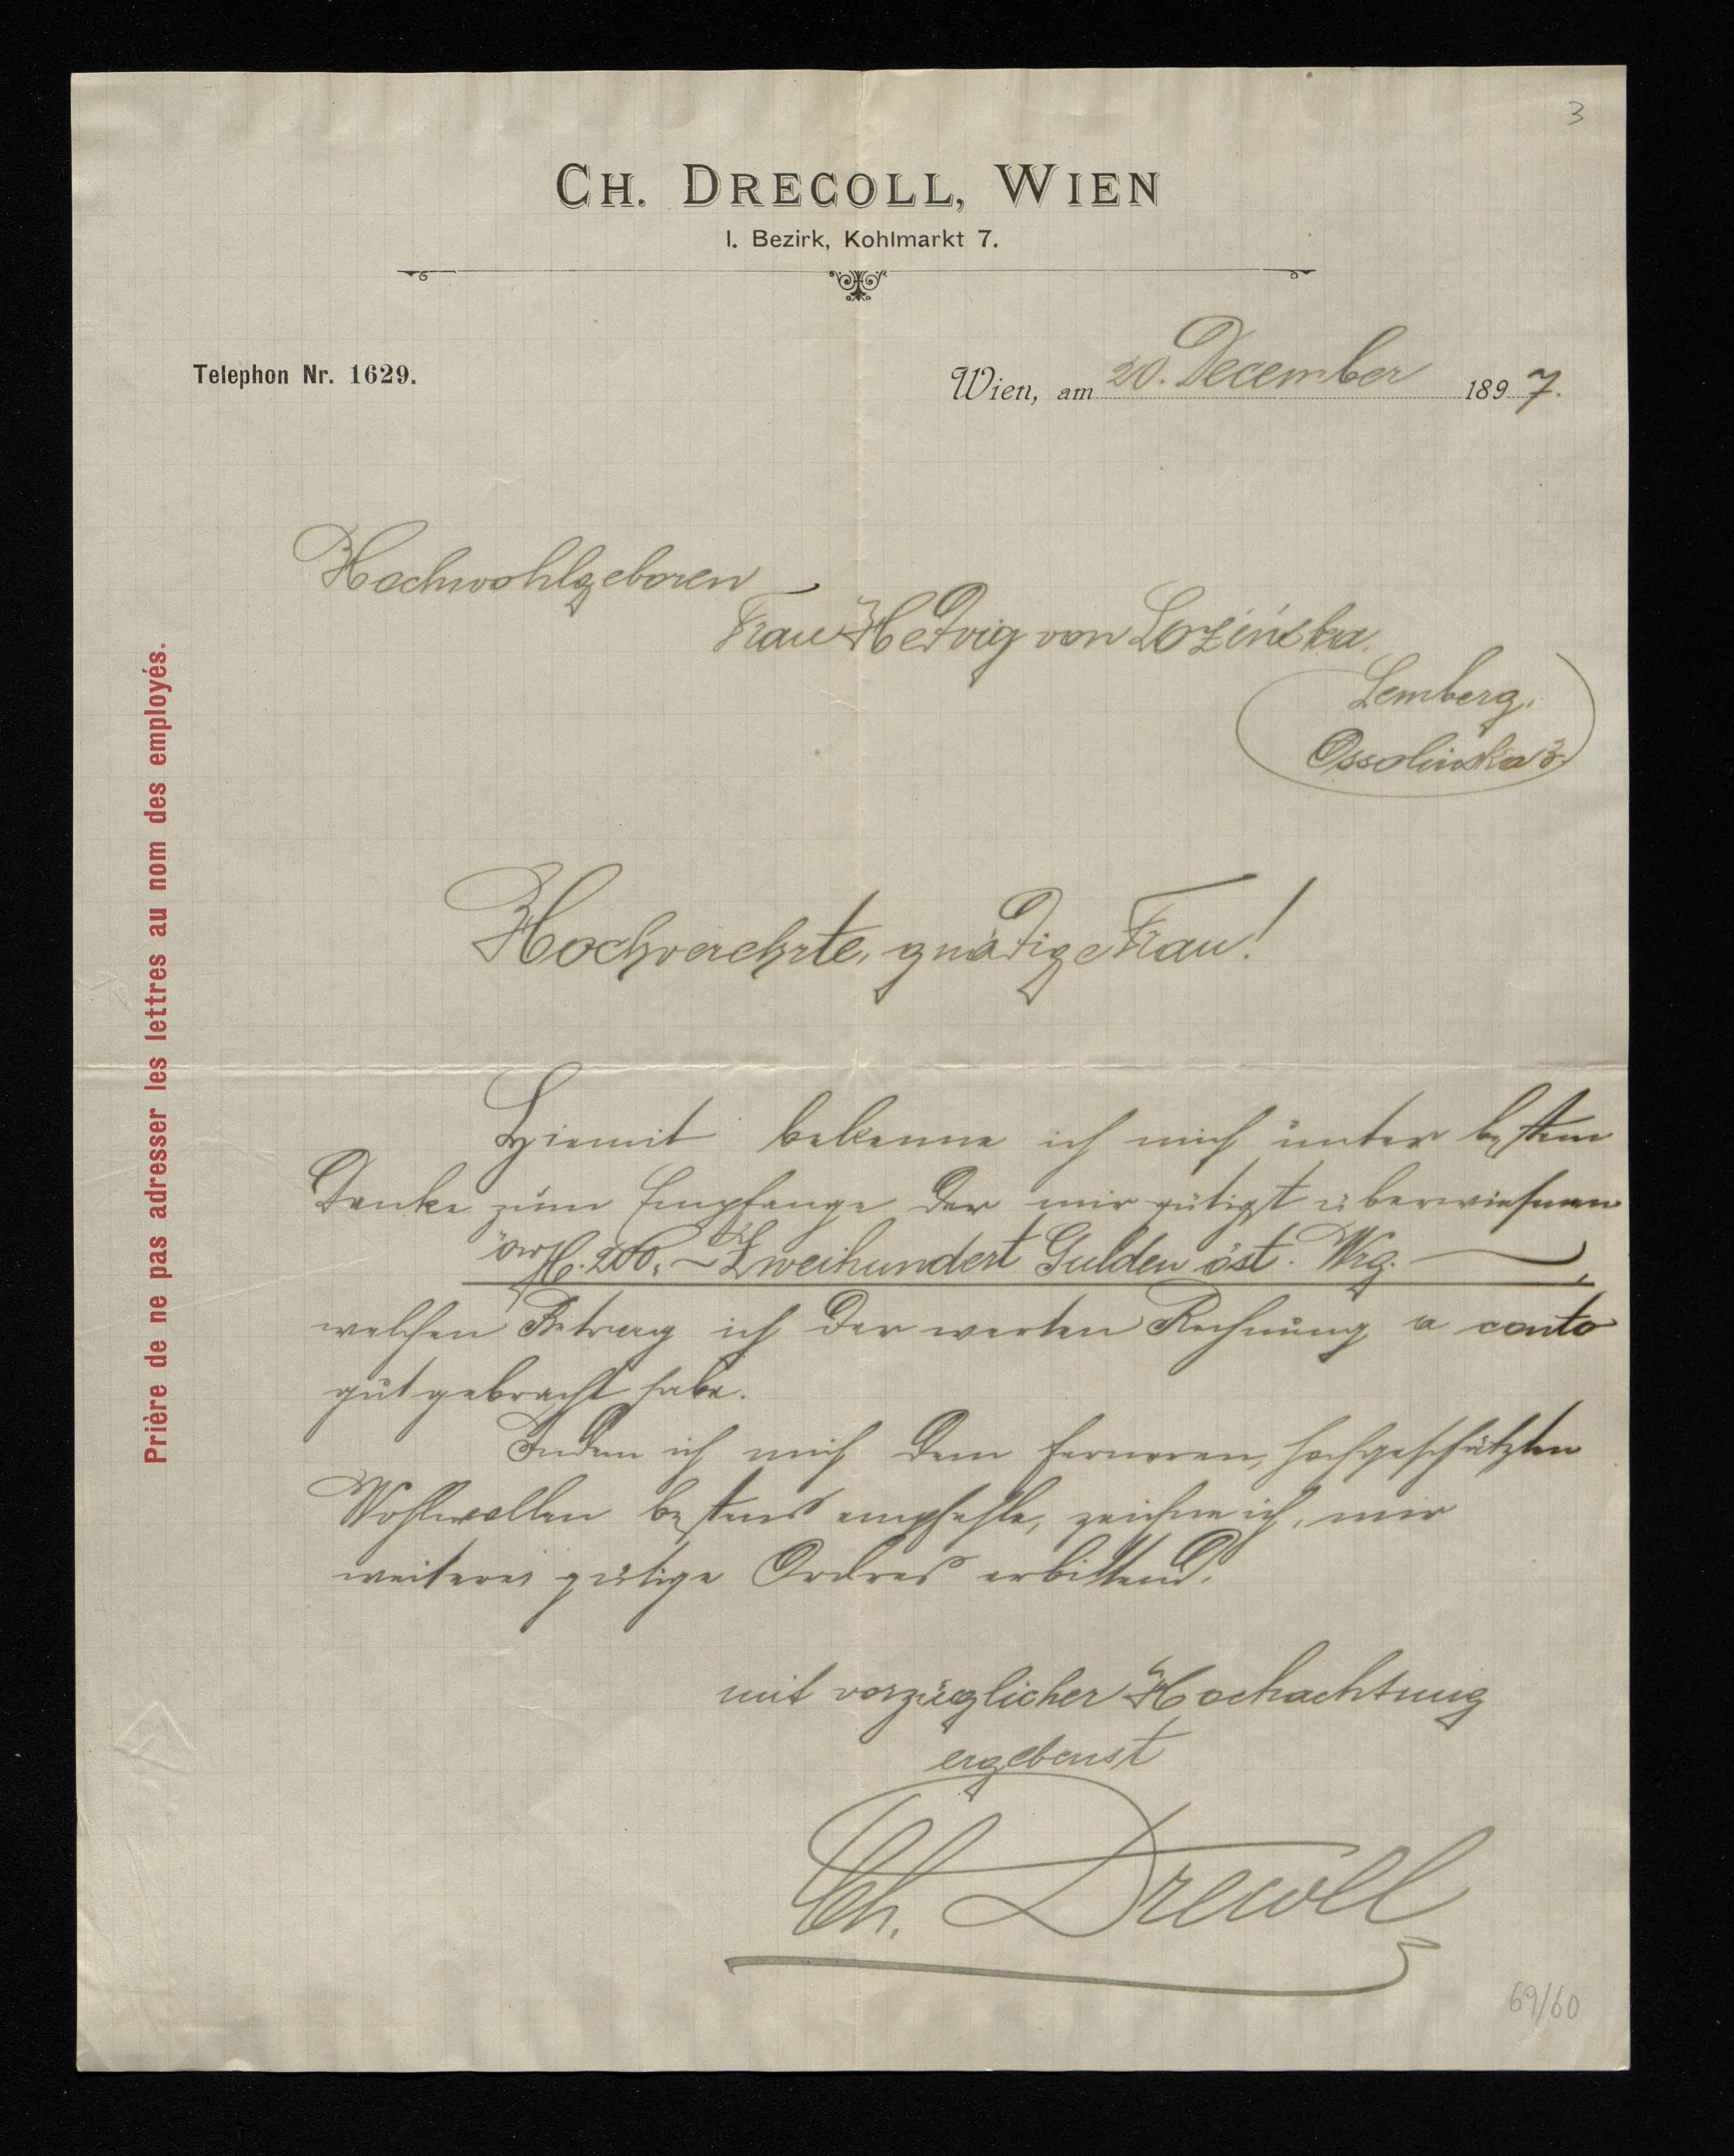 3
CH. DRECOLL, WIEN
I. Bezirk, Kohlmarkt 7.
Telephon Nr. 1629.
Wien, am 20. December 1897.
Hochwohlgeboren
Frau Hedvig von Lozińska.
Lemberg,
Ossolińska 3.
Hochverehrte, gnädige Frau!
Hiemit bekenne ich mich unter bestem
Danke zum Empfange der mir gütigst überwiesenen
öW fl. 200,~ Zweihundert Gulden öst. Wrg.
welchen Betrag ich der werten Rechnung a conto
gut gebracht habe.
Indem ich mich dem ferneren, hochgeschätzten
Wohlwollen bestens empfehle, zeichne ich, mir
weitere gütige Ordres erbittend,
mit vorzüglicher Hochachtung
ergebenst
Ch. Drecoll
69/60
Prière de ne pas adresser les lettres au nom des employés.